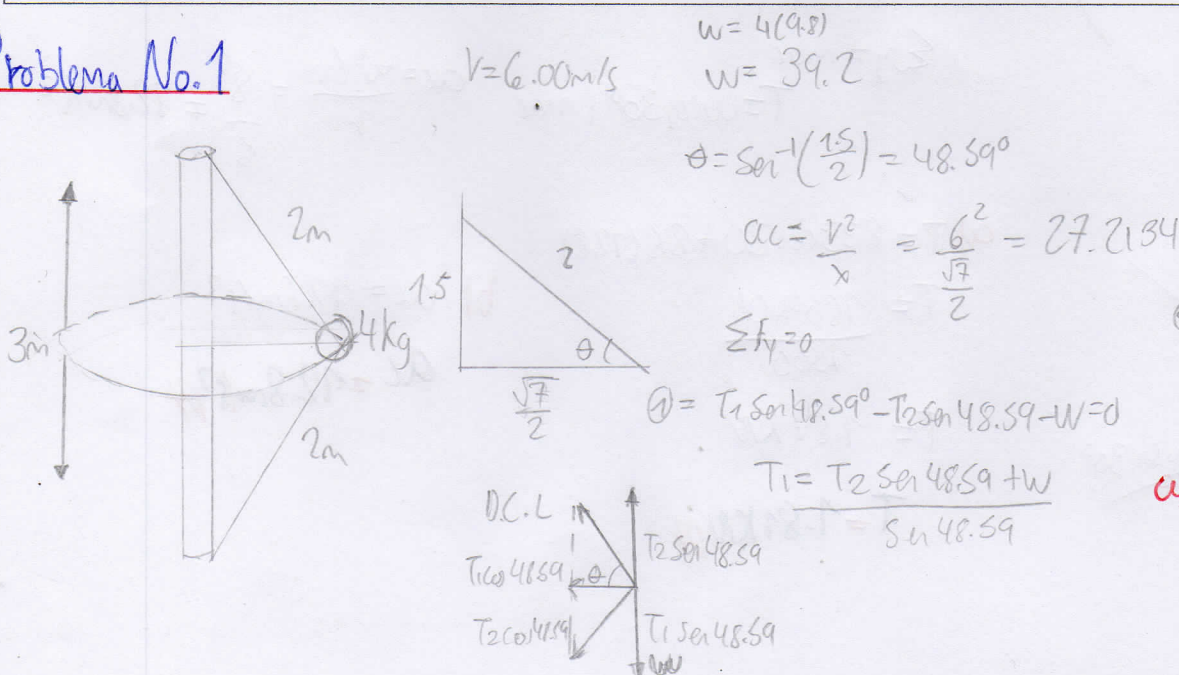 Problema No.1
V=6.00m/s
w= 4(9.8)
w= 39.2
θ= Sen⁻¹(1.5/2) = 48.59°
ac= v²/x = 6²/(√7/2) = 27.2134
ΣFy=0
①= T1 Sen48.59° - T2 Sen 48.59 - W=0
T1= (T2 Sen 48.59 + W)/(Sen 48.59)
3m
2m
4kg
2m
1.5
2
θ
√7/2
D.C.L
T1cos48.59
θ
T2 Sen 48.59
T2cos48.59
T1 Sen 48.59